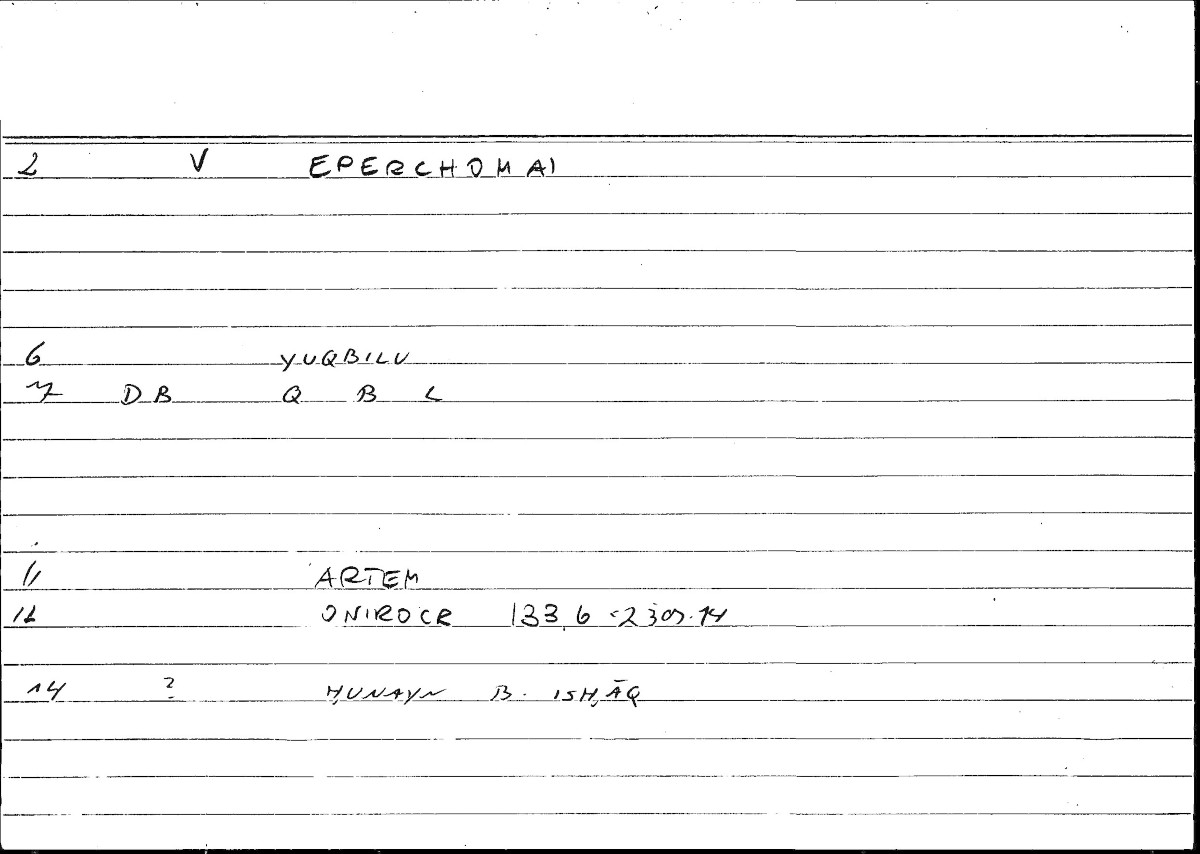 2 V EPERCHOMAI
6 YUQBILU
7 DB Q B L
11 ARTEM
12 ONIROCR 133,6
14 ? ḤUNAYN B. ISḤĀQ